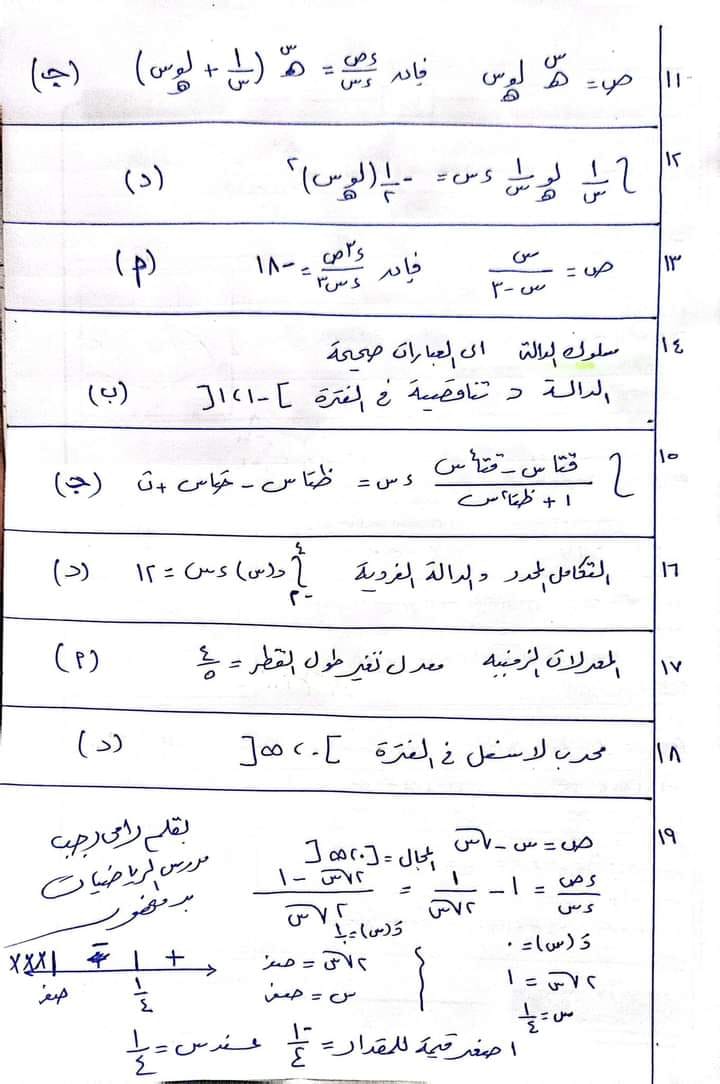 ١١ ص = هـ^س لو_هـ س فإن ءص/ءس = هـ^س (١/س + لو_هـ س) (ج)
١٢ ∫ ١/س لو_هـ ١/س ءس = -١/٢ (لو_هـ س)^٢ (د)
١٣ ص = س/(س-٣) فإن ء^٣ص/ءس^٣ = -١٨ (م)
١٤ سلوك الدالة اى العبارات صحيحة
الدالة د تناقصية فى الفترة ]-١،١[ (ب)
١٥ ∫ (قتا س - قتا^٤ س)/(١ + ظتا^٢ س) ءس = ظتا س - جتا س + ث (ج)
١٦ التكامل المحدد والدالة الفردية ∫_{-٢}^{٤} د(س) ءس = ١٢ (د)
١٧ المعدلات الزمنيه معدل تغير طول القطر = ٤/٥ (م)
١٨ محدب لاسفل فى الفترة ]٠،∞[ (د)
١٩ ص = س - √س المجال = [٠،∞[
ءص/ءس = ١ - ١/(٢√س) = (٢√س - ١)/(٢√س)
دَ(س) = ٠ دَ(س) = ١/٠
٢√س = ١ ٢√س = صفر
س = ١/٤ س = صفر
xxx - +
صفر ١/٤
اصغر قيمة للمقدار = -١/٤ عند س = ١/٤
بقلم رامى رجب
مدرس الرياضيات